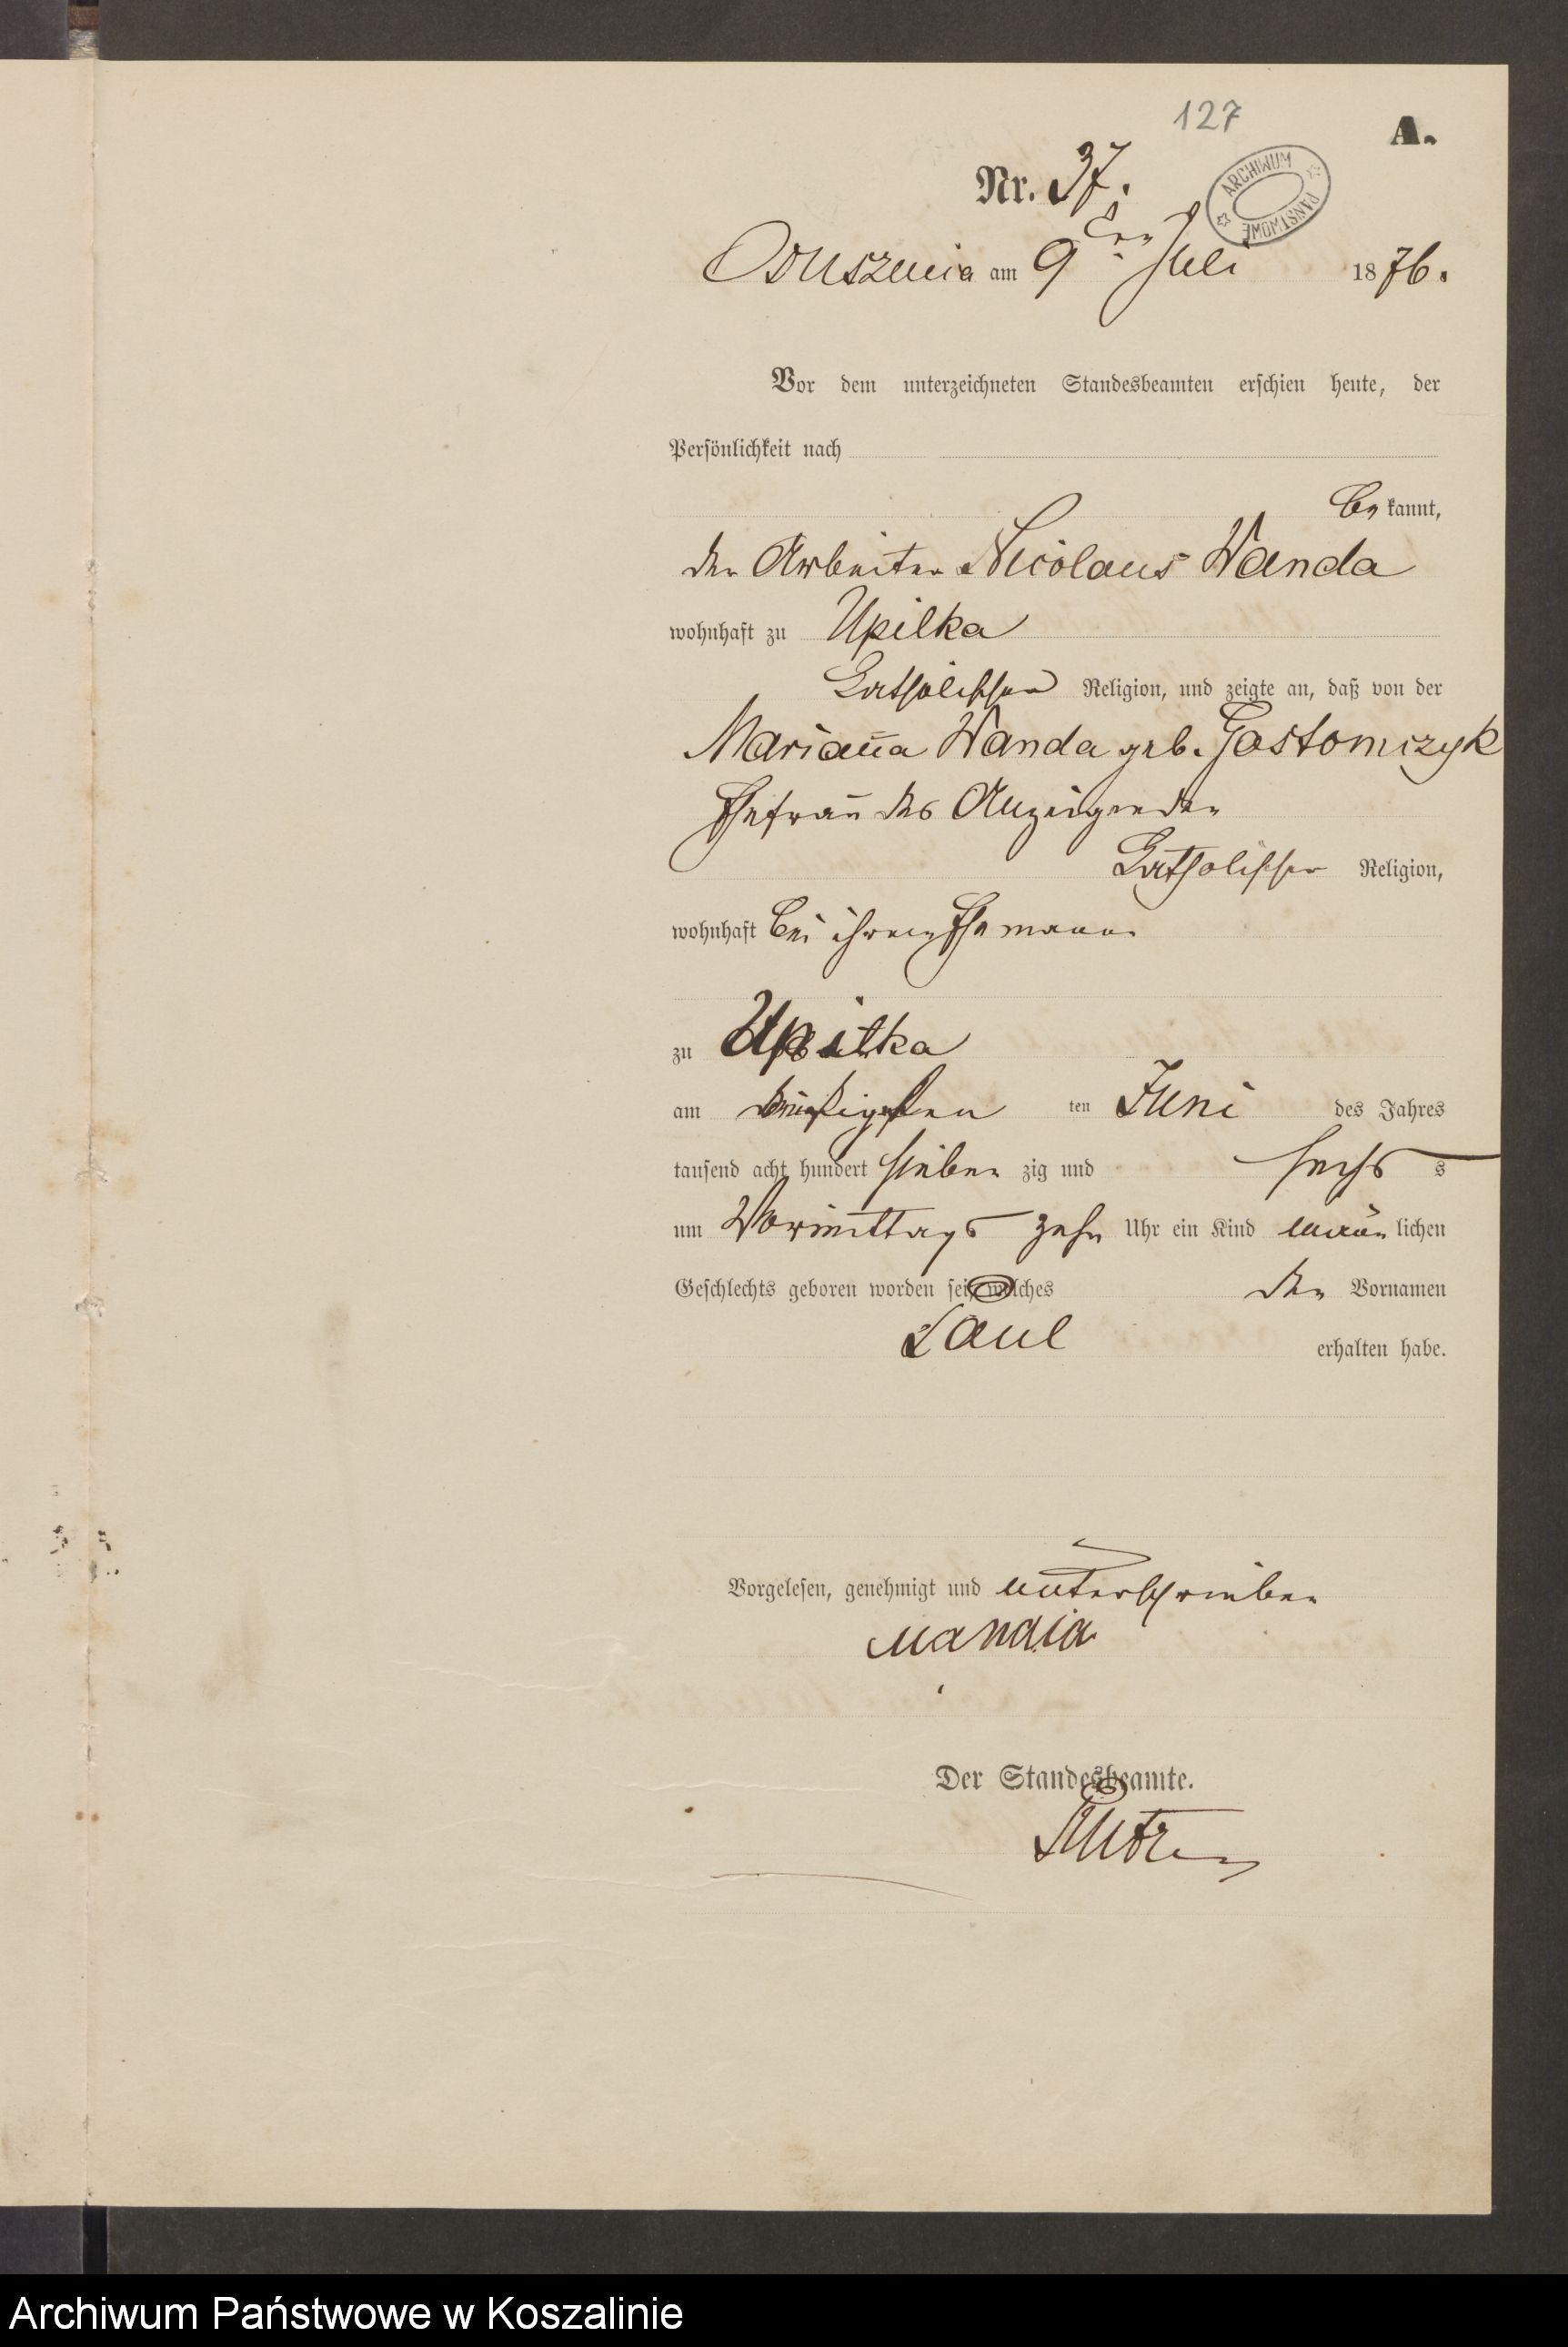 127
A.
Nr. 37.
ARCHIWUM PAŃSTWOWE
Osusznica am 9ten Juli 1876.
Vor dem unterzeichneten Standesbeamten erschien heute, der
Persönlichkeit nach
be kannt,
der Arbeiter Nicolaus Wanda
wohnhaft zu Upilka
katholischer Religion, und zeigte an, daß von der
Marian̄a Wanda geb. Gostomczyk
Ehefrau des Anzeigenden
katholischer Religion,
wohnhaft bei ihrem Ehemann
zu Upilka
am dreißigsten ten Juni des Jahres
tausend acht hundert sieben zig und sechs s
um Vormittags zehn Uhr ein Kind män̄ lichen
Geschlechts geboren worden sei, welches den Vornamen
Paul erhalten habe.
Vorgelesen, genehmigt und unterschrieben
Der Standesbeamte.
Archiwum Państwowe w Koszalinie